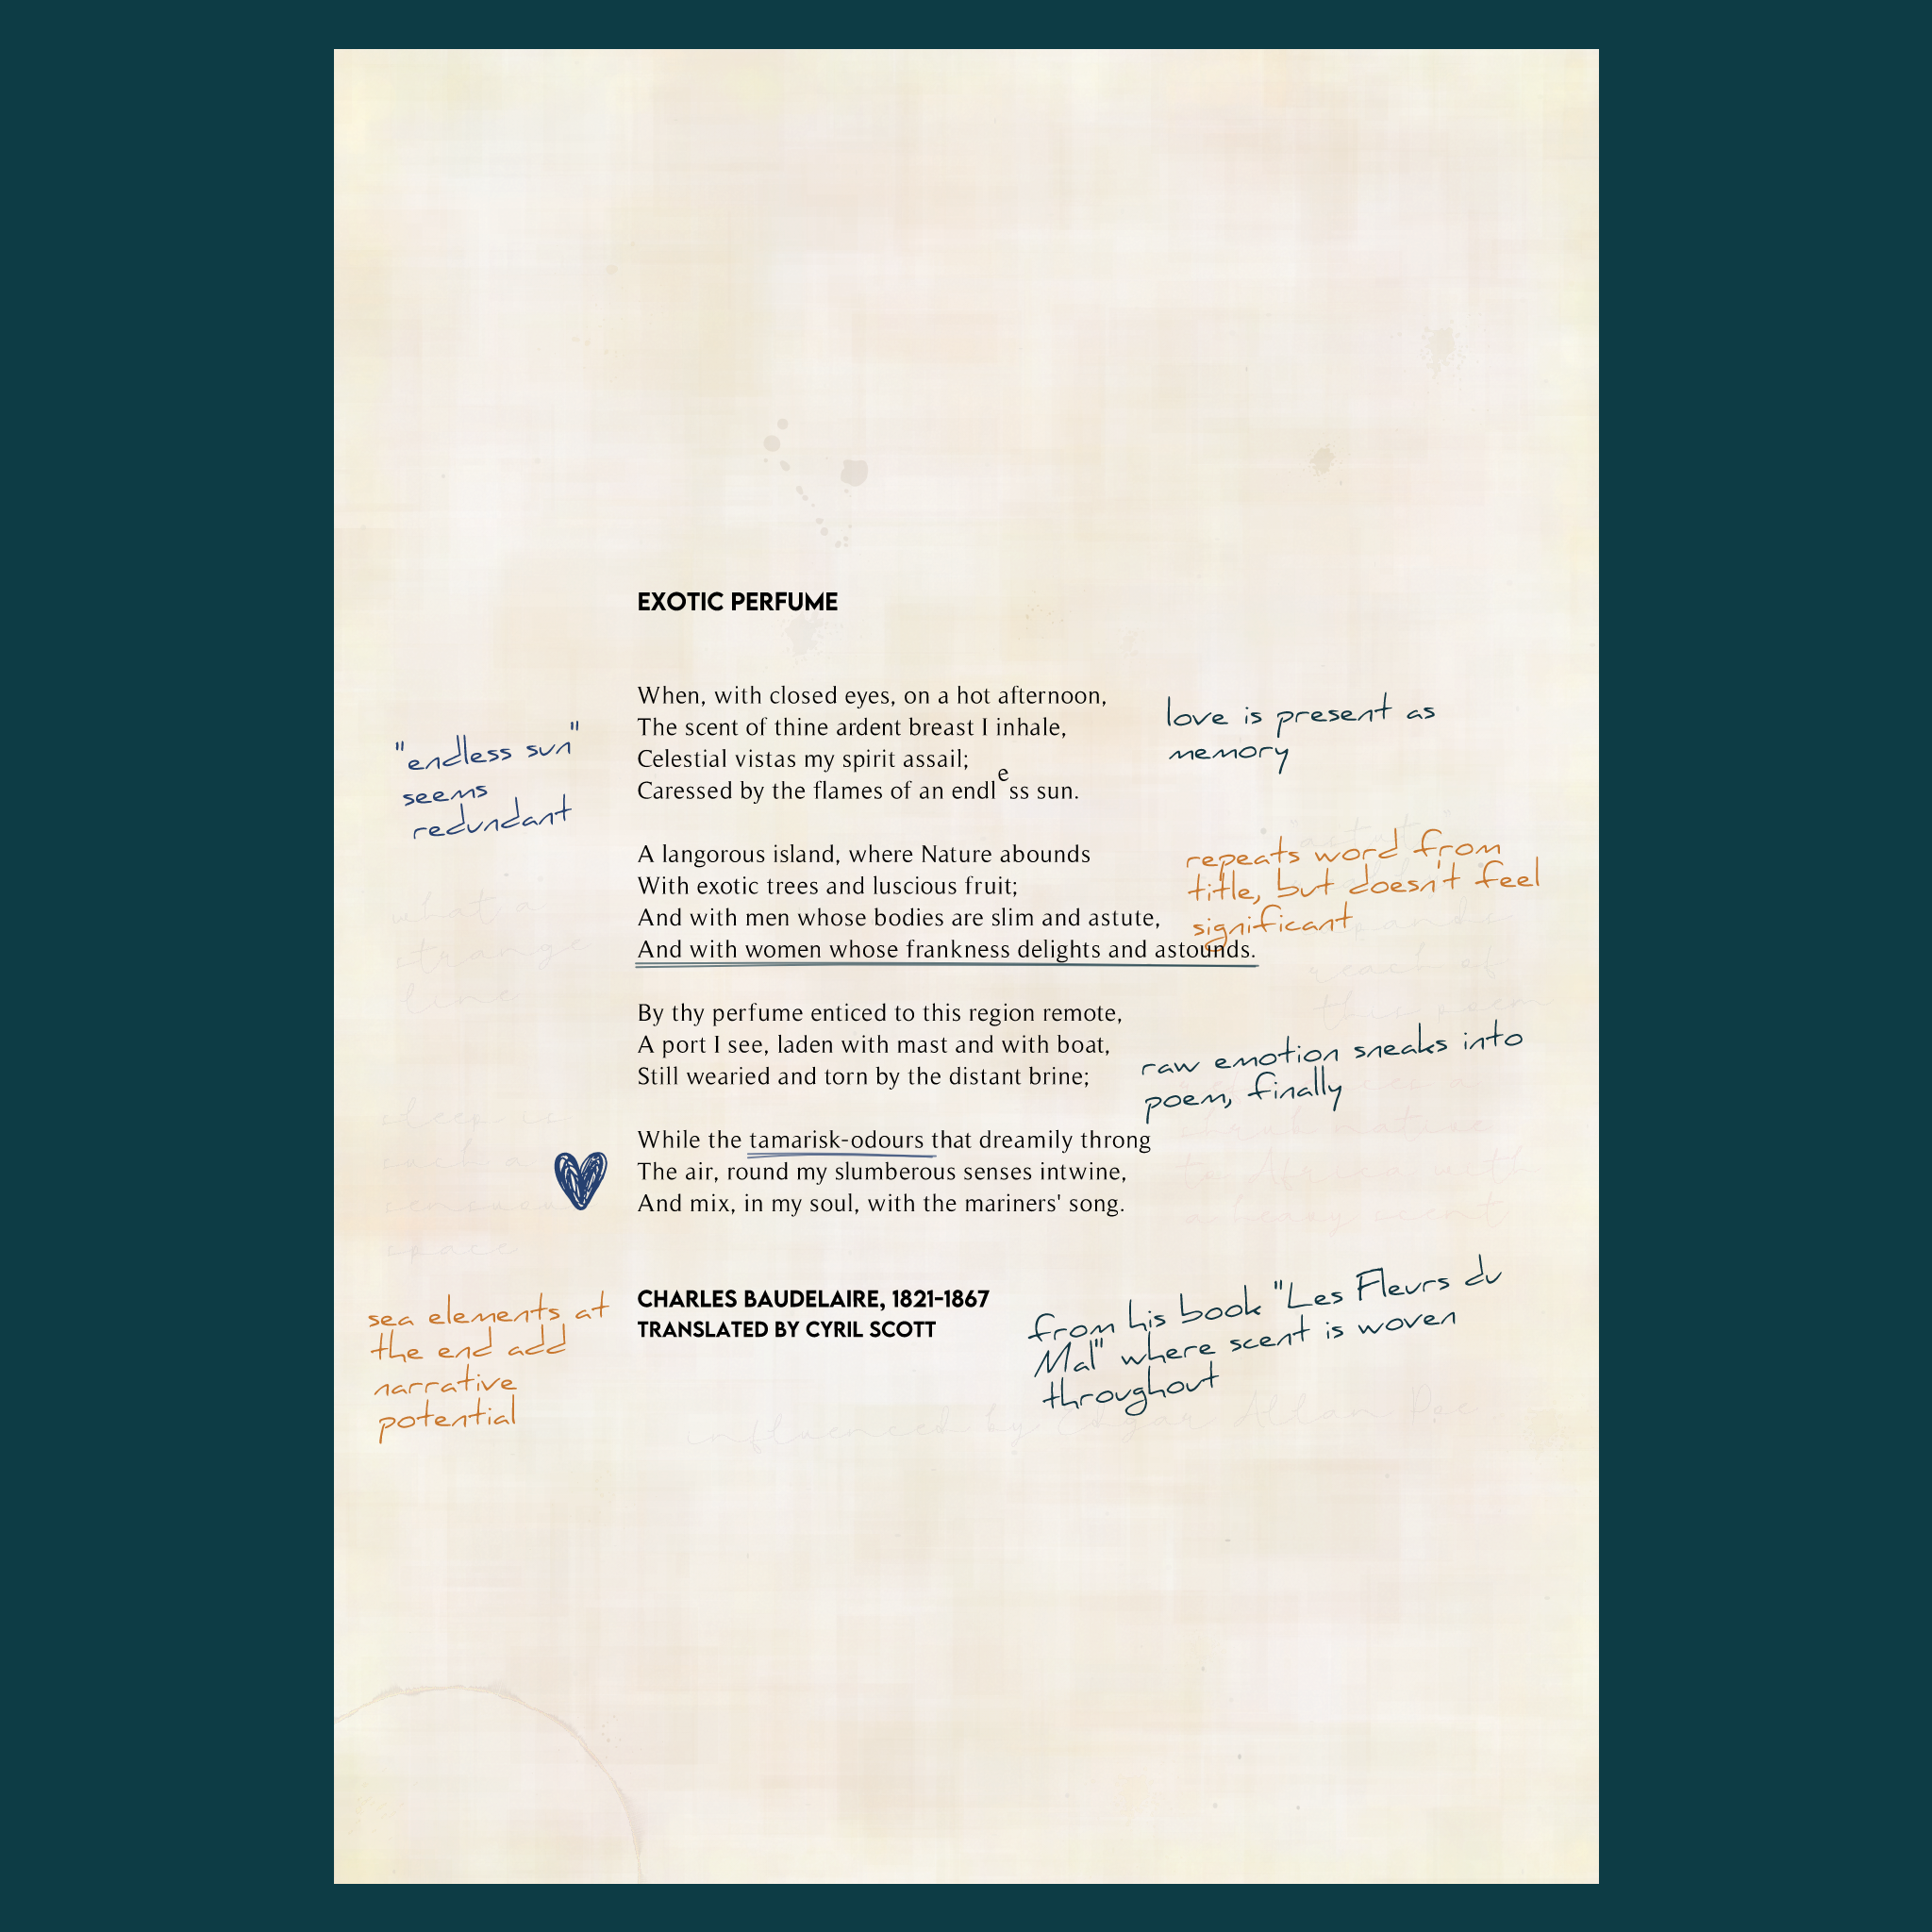 EXOTIC PERFUME
When, with closed eyes, on a hot afternoon,
The scent of thine ardent breast I inhale,
Celestial vistas my spirit assail;
Caressed by the flames of an endless sun.
A langorous island, where Nature abounds
With exotic trees and luscious fruit;
And with men whose bodies are slim and astute,
And with women whose frankness delights and astounds.
By thy perfume enticed to this region remote,
A port I see, laden with mast and with boat,
Still wearied and torn by the distant brine;
While the tamarisk-odours that dreamily throng
The air, round my slumberous senses intwine,
And mix, in my soul, with the mariners' song.
CHARLES BAUDELAIRE, 1821-1867
TRANSLATED BY CYRIL SCOTT
"endless sun"
seems
redundant
love is present as
memory
repeats word from
title, but doesn't feel
significant
raw emotion sneaks into
poem, finally
sea elements at
the end add
narrative
potential
from his book "Les Fleurs du
Mal" where scent is woven
throughout
what a
strange
line
"astute"
reach of
this poem
sleep is
such a
sensuous
space
shrub native
to Africa with
a heavy scent
influenced by Edgar Allan Poe